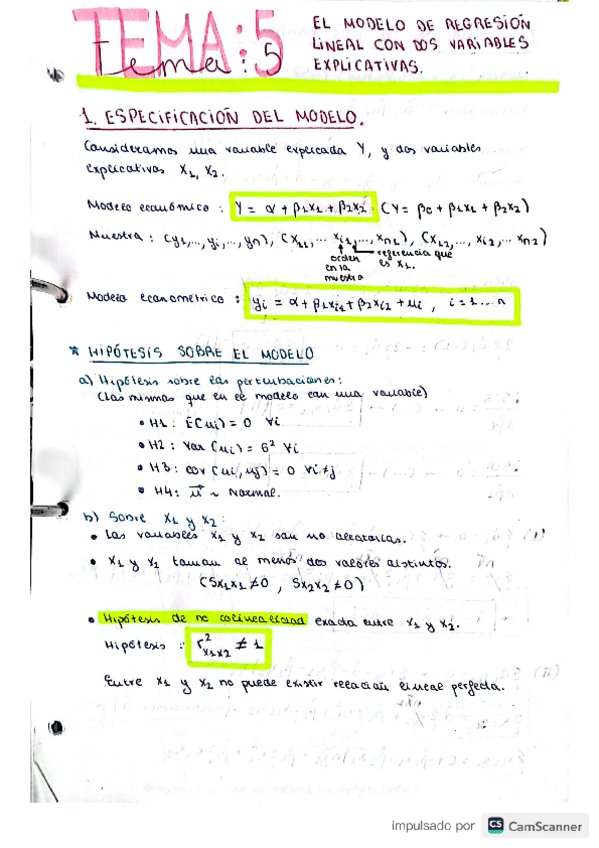 TEMA:5
Tema:5
EL MODELO DE REGRESIÓN
LINEAL CON DOS VARIABLES
EXPLICATIVAS.
1. ESPECIFICACIÓN DEL MODELO.
Consideramos una variable explicada Y, y dos variables
explicativas X₁, X₂.
Modelo económico : Y = α + β₁X₁ + β₂X₂. (Y = β₀ + β₁X₁ + β₂X₂)
Muestra : (y₁,..., yi,..., yn), (X₁₁,... Xi₁,..., Xn₁), (X₁₂,..., Xi₂,... Xn₂)
orden en la muestra
referencia que es X₁.
Modelo econométrico : yi = α + β₁Xi₁ + β₂Xi₂ + ui , i = 1 ... n
* HIPÓTESIS SOBRE EL MODELO
a) Hipótesis sobre las perturbaciones:
(Las mismas que en el modelo con una variable)
• H1 : E(ui) = 0 ∀i
• H2 : Var (ui) = σ² ∀i
• H3 : cov (ui, uj) = 0 ∀i≠j
• H4 : u⃗ ~ Normal.
b) Sobre X₁ y X₂ :
• Las variables X₁ y X₂ son no aleatorias.
• X₁ y X₂ toman al menos dos valores distintos.
(Sx₁x₁ ≠ 0 , Sx₂x₂ ≠ 0)
• Hipótesis de no colinealidad exacta entre X₁ y X₂.
Hipótesis : r²x₁x₂ ≠ 1
Entre X₁ y X₂ no puede existir relación lineal perfecta.
impulsado por CS CamScanner